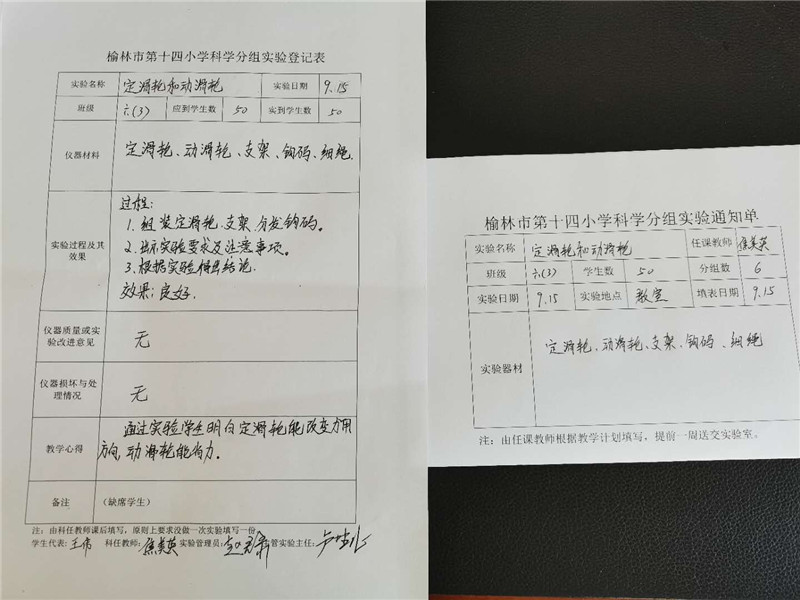 榆林市第十四小学科学分组实验登记表
实验名称 定滑轮和动滑轮 实验日期 9.15
班级 六(3) 应到学生数 50 实到学生数 50
仪器材料 定滑轮、动滑轮、支架、钩码、细绳.
实验过程及其效果 过程:
1. 组装定滑轮.支架.分发钩码。
2. 出示实验要求及注意事项。
3. 根据实验得出结论.
效果: 良好.
仪器质量或实验改进意见 无
仪器损坏与处理情况 无
教学心得 通过实验学生明白定滑轮能改变力用
方向,动滑轮能省力.
备注 (缺席学生)
注:由科任教师课后填写,原则上要求没做一次实验填写一份
学生代表: 王伟 科任教师: 焦美英 实验管理员: 管实验主任:
榆林市第十四小学科学分组实验通知单
实验名称 定滑轮和动滑轮 任课教师 焦美英
班级 六(3) 学生数 50 分组数 6
实验日期 9.15 实验地点 教室 填表日期 9.15
实验器材 定滑轮、动滑轮、支架、钩码、细绳
注:由任课教师根据教学计划填写,提前一周送交实验室。